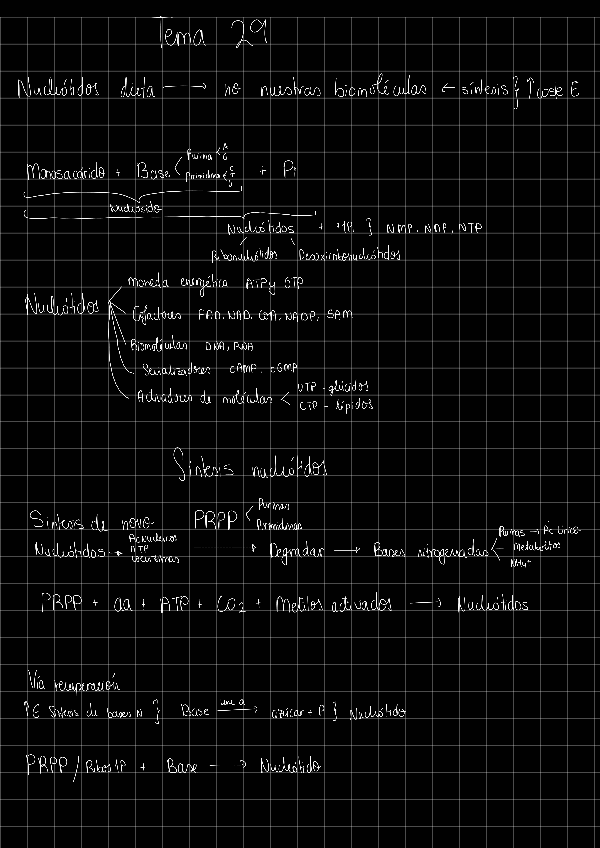 Tema 29
Nucleótidos dieta → no nuestras biomoléculas ← síntesis } ↑ coste E
Monosacárido + Base < Purina < A G + Pi
Pirimidina < C T U
Nucleósido
Nucleótidos + 1P } NMP, NDP, NTP
Ribonucleótidos Desoxirribonucleótidos
Nucleótidos
moneda energética ATP y GTP
Cofactores FAD, NAD, CoA, NADP, SAM
Biomoléculas DNA, RNA
Señalizadores cAMP, cGMP
Activadores de moléculas < UTP - glúcidos
CTP - lípidos
Síntesis nucleótidos
Síntesis de novo PRPP < Purinas
Pirimidinas
Nucleótidos → Ac nucleicos
NTP
Degradar → Bases nitrogenadas < Purinas → Ác Úrico
Metabolitos
NH4+
PRPP + aa + ATP + CO2 + Metilos activados → Nucleótidos
Vía recuperación
↑E Síntesis de bases N } Base une a → azúcar + P } Nucleótido
PRPP / Ribos 1P + Base → Nucleótido